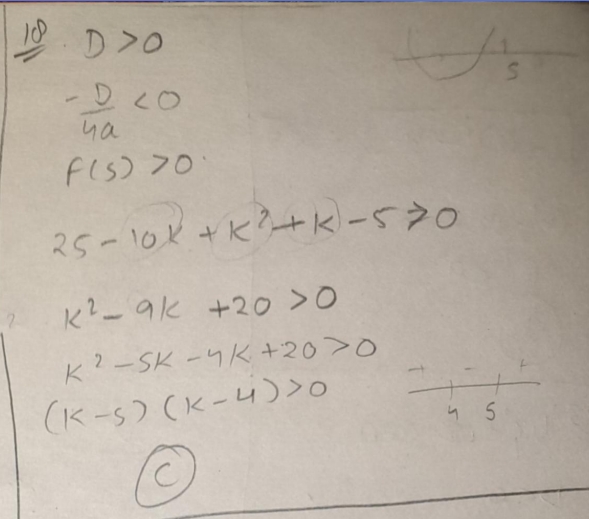 18. D > 0
5
-D/4a < 0
f(5) > 0
25 - 10k + k² + k - 5 > 0
k² - 9k + 20 > 0
k² - 5k - 4k + 20 > 0
(k-5) (k-4) > 0
+ - +
4 5
C